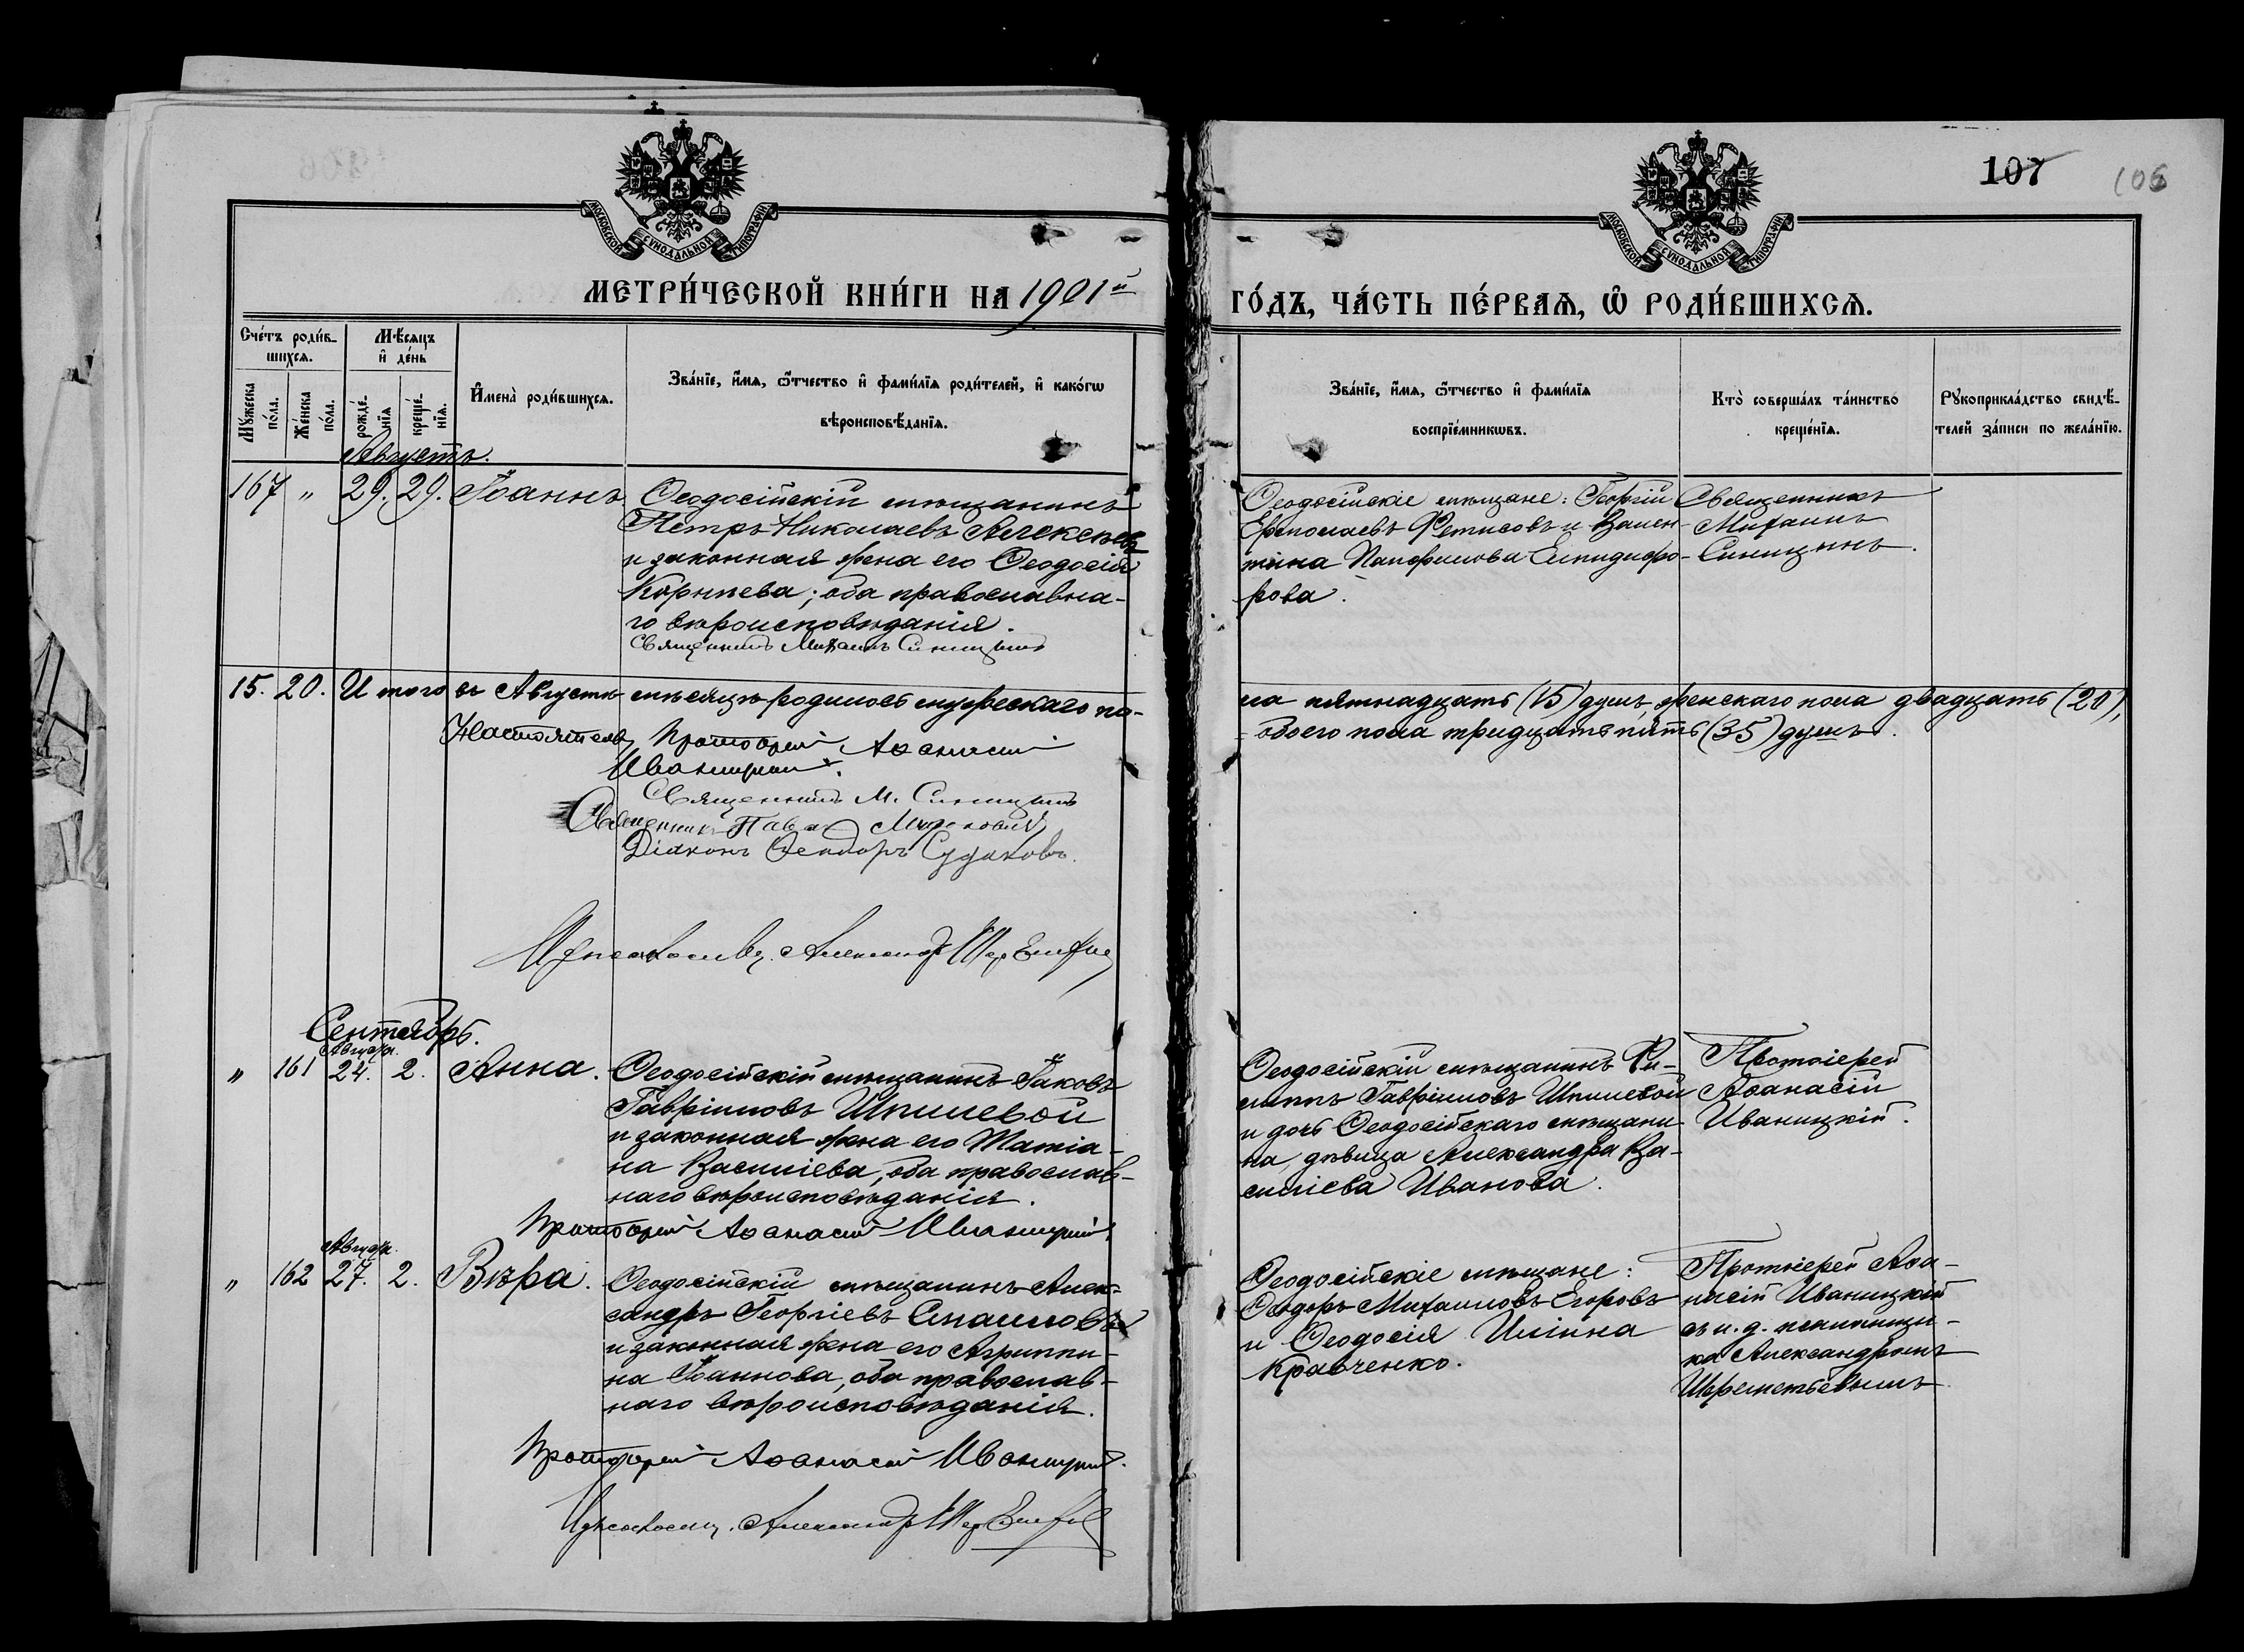 107
106
МОСКОВСКОЙ СѴНОДАЛЬНОЙ ТИПОГРАФІИ
МОСКОВСКОЙ СѴНОДАЛЬНОЙ ТИПОГРАФІИ
МЕТРИ́ЧЕСКОЙ КНИ́ГИ НА 1901й ГО́ДЪ, ЧА́СТЬ ПЕ́РВАѦ, Ѡ҆ РОДИ́ВШИХСѦ.
Сче́тъ роди́в-
шихсѧ.
Мꙋ́жеска
по́ла.
Же́нска
по́ла.
Мѣ́сѧцъ
и҆ де́нь
рожде́-
нїѧ
креще́-
нїѧ.
И҆мена̀ роди́вшихсѧ.
Зва́нїе, и҆́мѧ, ѻ҆́тчество и҆ фами́лїѧ роди́телей, и҆ како́гѡ
вѣроисповѣ́данїѧ.
Зва́нїе, и҆́мѧ, ѻ҆́тчество и҆ фами́лїѧ
воспрїе́мникѡвъ.
Кто̀ соверша́лъ та́инство
креще́нїѧ.
Рꙋкоприкла́дство свидѣ́-
телей за́писи по жела́нїю.
Августъ.
167 " 29. 29. Іоаннъ.
Ѳеодосійскій мѣщанинъ
Петръ Николаевъ Алексѣевъ
и законная жена его Ѳеодосія
Корнѣева; оба православна-
го вѣроисповѣданія.
Священникъ Михаилъ Синицынъ
Ѳеодосійскіе мѣщане: Георгій
Ермолаевъ Фетисовъ и Вален-
тина Панфилова Елпидифо-
рова.
Священникъ
Михаилъ
Синицынъ.
15. 20. И того въ Августѣ мѣсяцѣ родилось мужескаго по-
ла пятнадцать (15) душъ, женскаго пола двадцать (20),
обоего пола тридцать пять (35) душъ.
Настоятель, Протоіерей Аѳанасій
Иваницкій.
Священникъ М. Синицынъ
Священникъ Павелъ
Діаконъ Ѳеодоръ Судаковъ.
Александръ Шереметьев
Сентябрь.
Август.
" 161 24. 2. Анна.
Ѳеодосійскій мѣщанинъ Іаковъ
Гавріиловъ Шпилевой
и законная жена его Татіа-
на Василіева, оба православ-
наго вѣроисповѣданія.
Протоіерей Аѳанасій Иваницкій
Ѳеодосійскій мѣщанинъ Фи-
липпъ Гавріиловъ Шпилевой
и дочь Ѳеодосійскаго мѣщани-
на, дѣвица Александра Ва-
силіева Иванова.
Протоіерей
Аѳанасій
Иваницкій.
Август.
" 162 27. 2. Вѣра.
Ѳеодосійскій мѣщанинъ Алек-
сандръ Георгіевъ
и законная жена его Агриппи-
на Іоаннова, оба православ-
наго вѣроисповѣданія.
Протоіерей Аѳанасій Иваницкій.
Александръ Шереметьев
Ѳеодосійскіе мѣщане:
Ѳеодоръ Михаиловъ Егоровъ
и Ѳеодосія Иліина
Кравченко.
Протоіерей Аѳа-
насій Иваницкій
съ и. д. псаломщи-
ка Александромъ
Шереметьевымъ